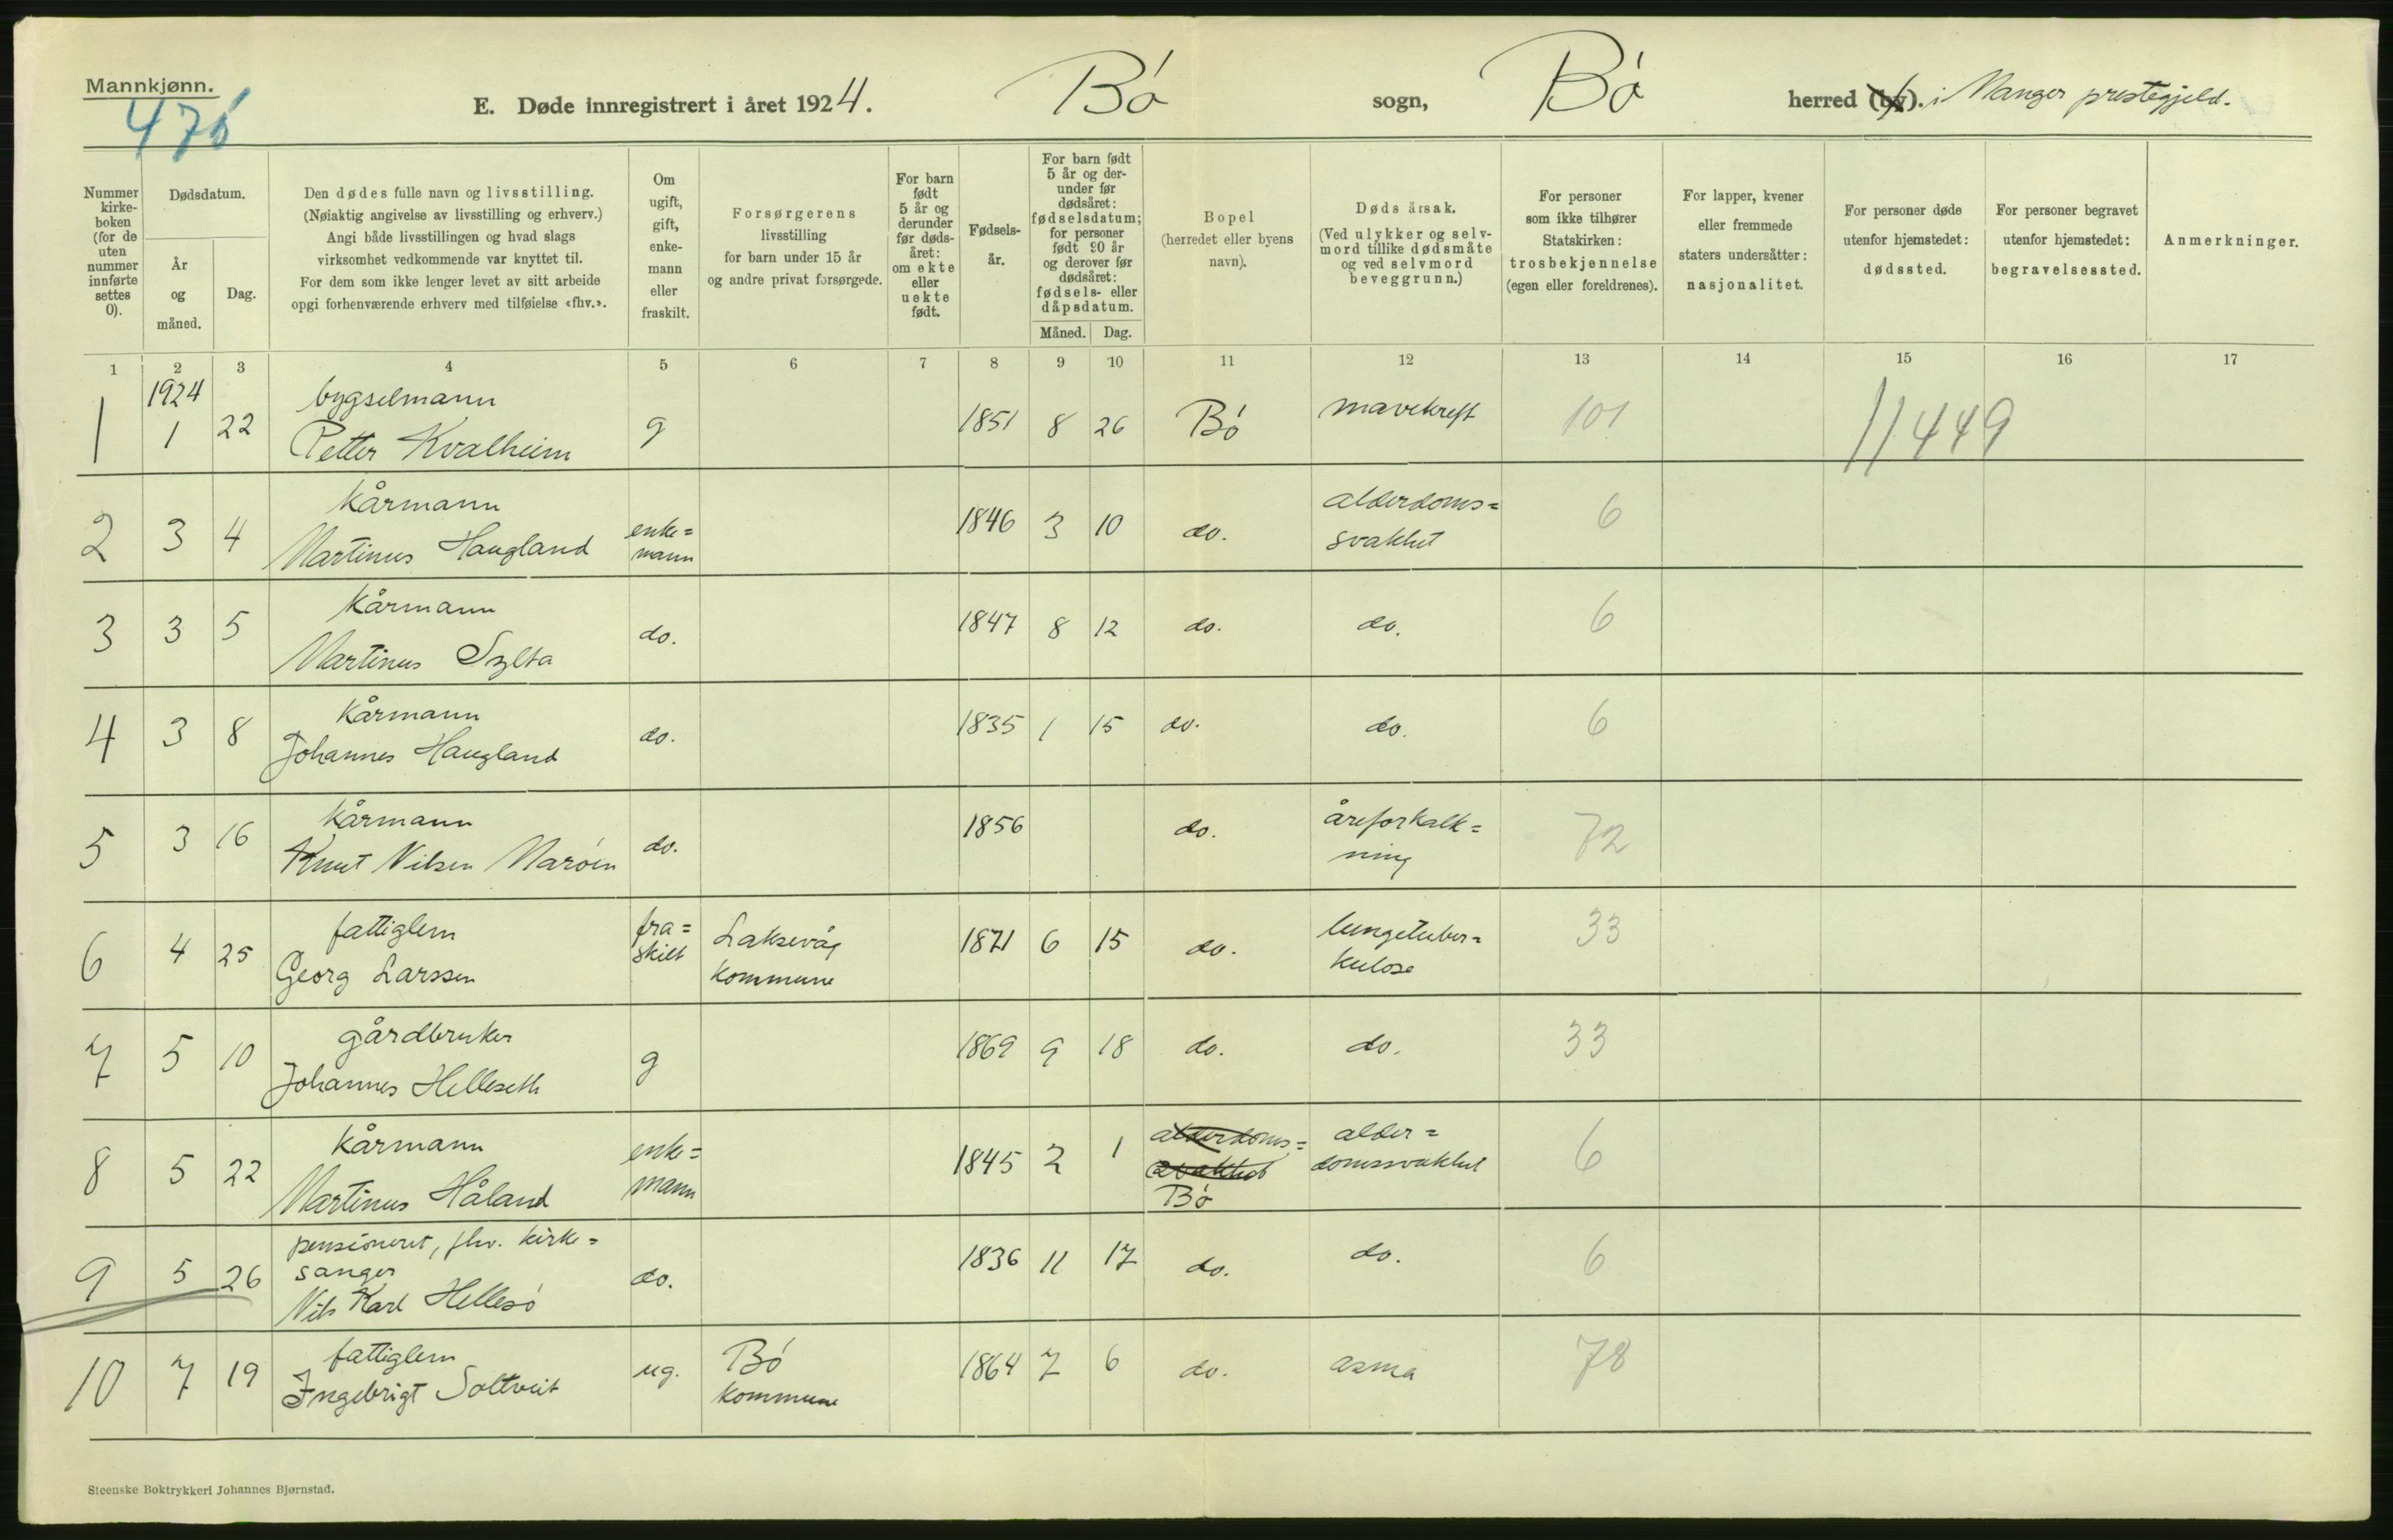 Mannkjønn.
476
E. Døde innregistrert i året 1924. Bø sogn, Bø herred (by). i Manger prestegjeld.
Nummer
kirke-
boken
(for de
uten
nummer
innførte
settes
0).
Dødsdatum.
År
og
måned.
Dag.
Den dødes fulle navn og livsstilling.
(Nøiaktig angivelse av livsstilling og erhverv.)
Angi både livsstillingen og hvad slags
virksomhet vedkommende var knyttet til.
For dem som ikke lenger levet av sitt arbeide
opgi forhenværende erhverv med tilføielse «fhv.».
Om
ugift,
gift,
enke-
mann
eller
fraskilt.
Forsørgerens
livsstilling
for barn under 15 år
og andre privat forsørgede.
For barn
født
5 år og
derunder
før døds-
året:
om ekte
eller
uekte
født.
Fødsels-
år.
For barn født
5 år og der-
under før
dødsåret:
fødselsdatum;
for personer
født 90 år
og derover før
dødsåret:
fødsels- eller
dåpsdatum.
Måned. Dag.
Bopel
(herredet eller byens
navn).
Dødsårsak.
(Ved ulykker og selv-
mord tillike dødsmåte
og ved selvmord
beveggrunn.)
For personer
som ikke tilhører
Statskirken:
trosbekjennelse
(egen eller foreldrenes).
For lapper, kvener
eller fremmede
staters undersåtter:
nasjonalitet.
For personer døde
utenfor hjemstedet:
dødssted.
For personer begravet
utenfor hjemstedet:
begravelsessted.
Anmerkninger.
1 2 3 4 5 6 7 8 9 10 11 12 13 14 15 16 17
1924 bygselmann
1 1 22 Petter Kvalheim g 1851 8 26 Bø mavekreft 101 11449
kårmann alderdoms=
2 3 4 Martinus Haugland enke= 1846 3 10 do. svakhet 6
mann
kårmann
3 3 5 Martinus Sylta do. 1847 8 12 do. do. 6
kårmann
4 3 8 Johannes Haugland do. 1835 1 15 do. do. 6
kårmann åreforkalk=
5 3 16 Knut Nilsen Marøen do. 1856 do. ning 72
fattiglem fra= Laksevåg lungetuber=
6 4 25 Georg Larssen skilt kommune 1871 6 15 do. kulose 33
gårdbruker
7 5 10 Johannes Helleseth g 1869 9 18 do. do. 33
kårmann enke= alderdoms= alder=
8 5 22 Martinus Håland mann 1845 2 1 svakhet domssvakhet 6
Bø
pensioneret, fhv. kirke=
sanger
9 5 26 Nils Karl Hellesø do. 1836 11 17 do. do. 6
fattiglem Bø
10 7 19 Ingebrigt Soltveit ug. kommune 1864 7 6 do. asma 78
Steenske Boktrykkeri Johannes Bjørnstad.